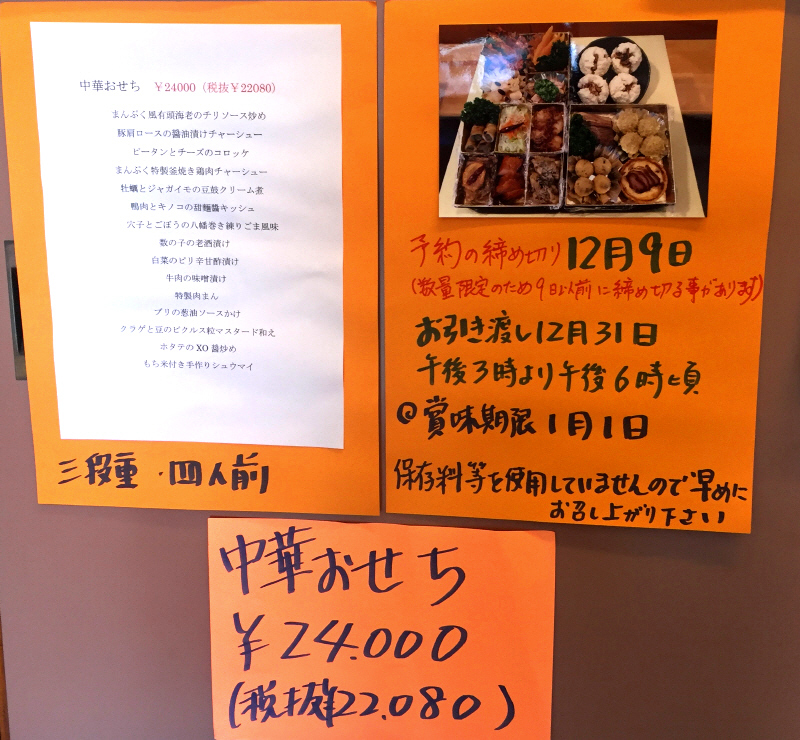 中華おせち ￥24000（税抜￥22080）
まんぷく風有頭海老のチリソース炒め
豚肩ロースの醤油漬けチャーシュー
ピータンとチーズのコロッケ
まんぷく特製釜焼き鶏肉チャーシュー
牡蠣とジャガイモの豆鼓クリーム煮
鴨肉とキノコの甜麺醤キッシュ
穴子とごぼうの八幡巻き練りごま風味
数の子の老酒漬け
白菜のピリ辛甘酢漬け
牛肉の味噌漬け
特製肉まん
ブリの葱油ソースかけ
クラゲと豆のピクルス粒マスタード和え
ホタテのXO醤炒め
もち米付き手作りシュウマイ
三段重・四人前
予約の締め切り12月9日
(数量限定のため9日以前に締め切る事があります)
お引き渡し12月31日
午後3時より午後6時頃
@賞味期限1月1日
保存料等を使用していませんので早めに
お召し上がり下さい
中華おせち
￥24.000
(税抜¥22.080)